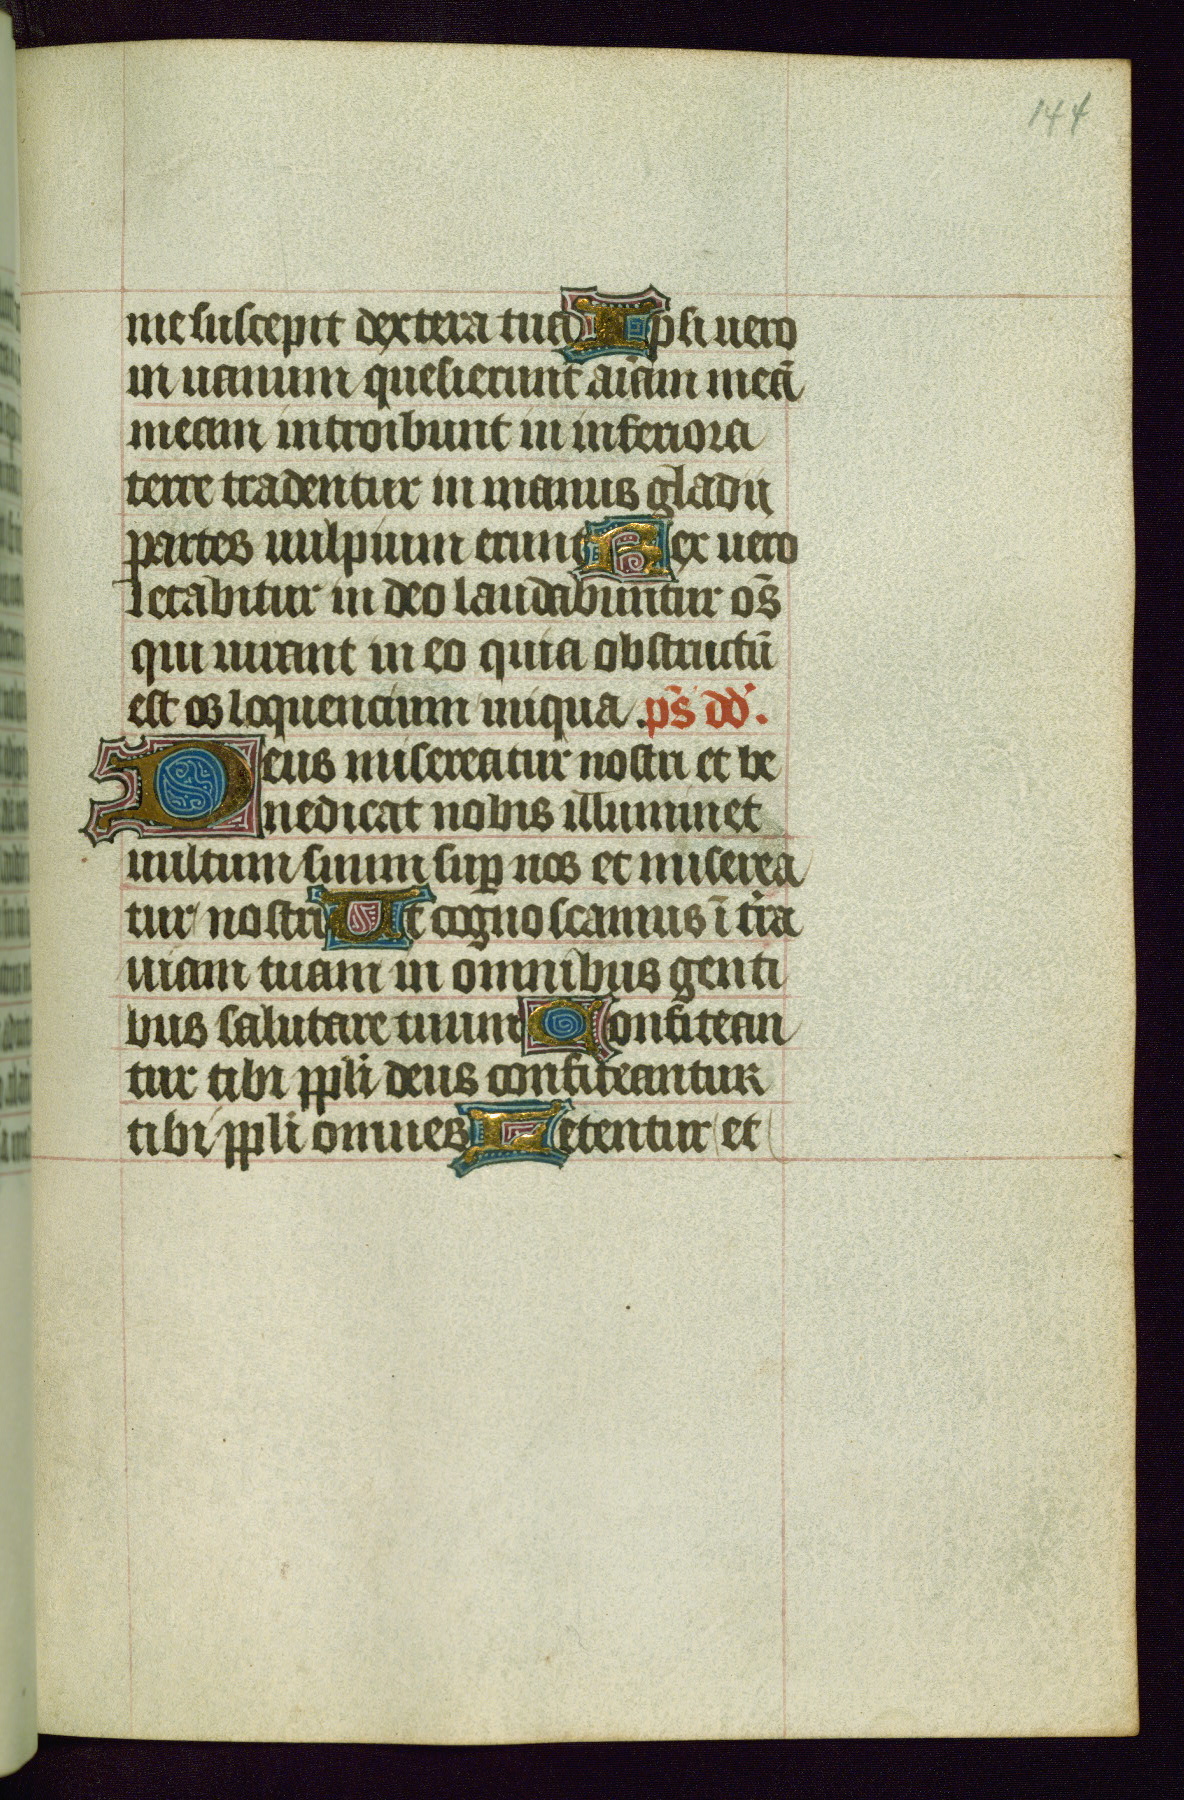 144
me suscepit dextera tua Ipsi uero
in uanum quesierunt aīam meā
meam introibunt in inferiora
terre tradentur in manus gladij
partes uulpium erunt Rex uero
letabitur in deo laudabuntur oīs
qui iurant in eo quia obstructū
est os loquencium iniqua. ps̄ dd̄.
Deus misereatur nostri et be
nedicat nobis illuminet
uultum suum sup̱ nos et miserea
tur nostri Ut cognoscamus ī tr̄a
uiam tuam in omnibus genti
bus salutare tuum Confitean
tur tibi ppl̄i deus confiteantur
tibi ppl̄i omnes Letentur et